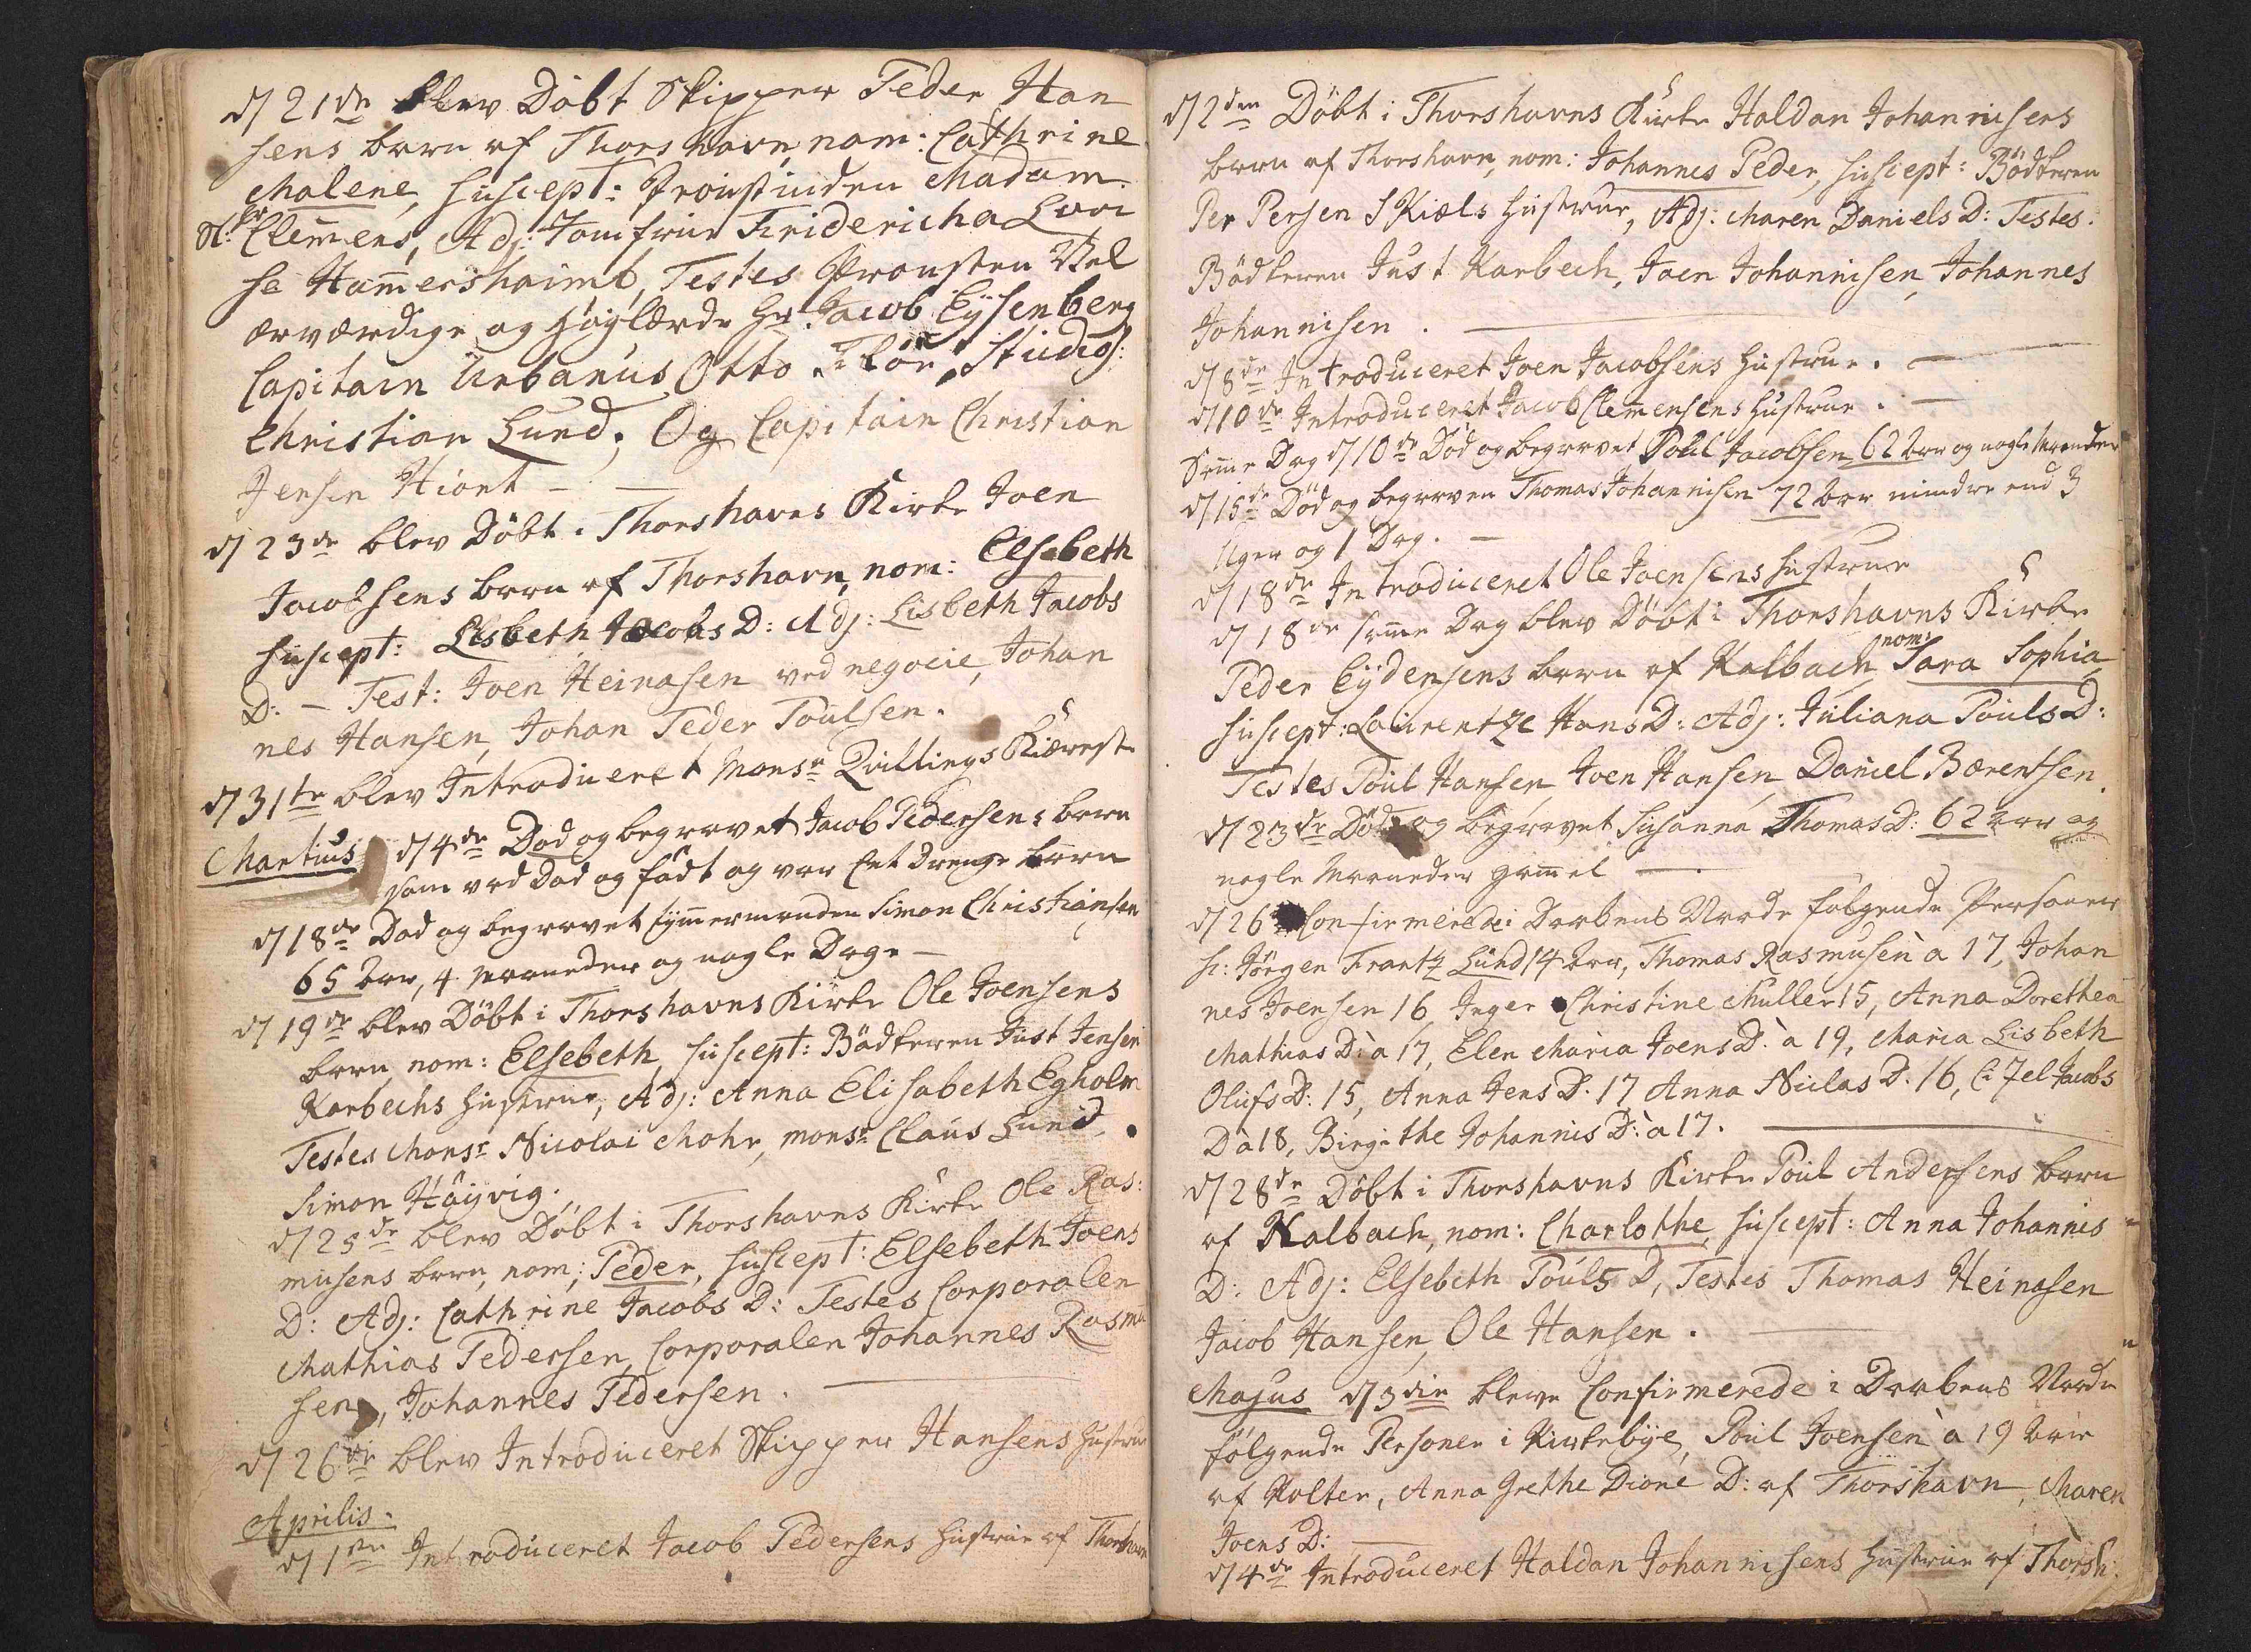 d 21de blev Döbt Skipper Peder Han
sens barn af Thorshavn, nom: Cathrine
Malene, suscept: Proustinden Madam.
Sl: Hr Clemens, Adj: Jomfrue Friderichа Lovi
se Ham̅ershaimb, Testes Prousten Vel
ærværdige og Höÿlærde Hr. Jacob Eÿsenberg
Capitain Urbanus Otto Flor, Studios:
Christian Lund, Og Capitain Christian
Jensen Hiort —
d 23de blev Döbt i Thorshavns Kirke Joen
Jacobsens barn af Thorshavn, nom: Elsebeth
suscept: Lisbeth Jacobs D: Adj: Lisbeth Jacobs
D: — Test: Joen Heinasen ved negocie, Johan
nes Hansen, Johan Peder Poulsen.
d 31te blev Introduceret Monsr Qvillings Kiæreste
Martius d 4de Död og begravet Jacob Pedersens barn
som var Död og födt og var Eet Drenge barn
d 18de Död og begravet Tÿm̅ermanden Simon Christiansen
65 aar, 4 Maaneder og nogle Dage —
d 19de blev Döbt i Thorshavns Kirke Ole Joensens
barn, nom: Elsebeth, suscept: Bödkeren Just Jensen
Karbechs Hustrue, Adj: Anna Elisabeth Egholm
Testes Monsr Nicolai Mohr, monsr Claus Lund,
Simon Höÿvig.
d 25de blev Döbt i Thorshavns Kirke Ole Ras:
musens barn, nom: Peder, suscept: Elsebeth Joens
D: Adj: Cathrine Jacobs D: Testes Corporalen
Mathias Pedersen, Corporalen Johannes Rasmu
sen, Johannes Pedersen.
d 26de blev Introduceret Skipper Hansens Hustrue
Aprilis.
d 1ste Introduceret Jacob Pedersens Hustrue af Thorshavn
d 2den Döbt i Thorshavns Kirke Haldan Johannisens
barn af Thorshavn, nom: Johannes Peder, suscept: Bödkeren
Per Persen SKiæls Hustrue, Adj: Maren Daniels D: Testes:
Bödkeren Just Karbech, Joen Johannisen, Johannes
Johannisen.
d 8de Introduceret Joen Jacobsens Hustrue. —
d 10de Introduceret Jacob Clem̅ensens Hustrue. —
Sam̅e Dag d 10de Död og begravet Poul Jacobsen 62 aar og nogle Maaneder
d 15de Död og begraven Thomas Johannisen 72 aar mindre end 3
Uger og 1 Dag. —
d 18de Introduceret Ole Joensens Hustrue
d 18de sam̅e Dag blev Döbt i Thorshavns Kirke
Peder Eÿdensens barn af Kalbach, nom: Sara Sophia
suscept: Laurentze Hans D: Adj: Juliana Pouls D:
Testes Poul Hansen, Joen Hansen, Daniel Bærentsen.
d 23de Död og begravet Susanna Thomas D: 62 aar og
nogle Maaneder gam̅el —
d 26 Confirmerede i Daabens Naade fölgende Personer
s: Jörgen Frantz Lund 14 aar, Thomas Rasmusen à 17, Johan
nes Joensen 16, Inger Christine Müller 15, Anna Dorethea
Mathias D: à 17, Elen Maria Joens D: à 19, Maria Lisbeth
Olufs D: 15, Anna Jens D. 17 Anna Niclas D. 16, Cizel Jacobs
D à 18, Birgithe Johannis D: à 17.
d 28de Döbt i Thorshavns Kirke Poul Andersens barn
af Kalbach, nom: Charlothe, suscept: Anna Johannis
D: Adj: Elsebeth Pouls D, Testes Thomas Heinasen
Jacob Hansen, Ole Hansen.
Majus d 3die bleve Confirmerede i Daabens Naade
fölgende Personer i Kirkebÿe, Poul Joensen à 19 aar
af Kolter, Anna Grethe Dione D: af Thorshavn, Maren
Joens D:
d 4de Introduceret Haldan Johannisens Hustrue af Thorsh: